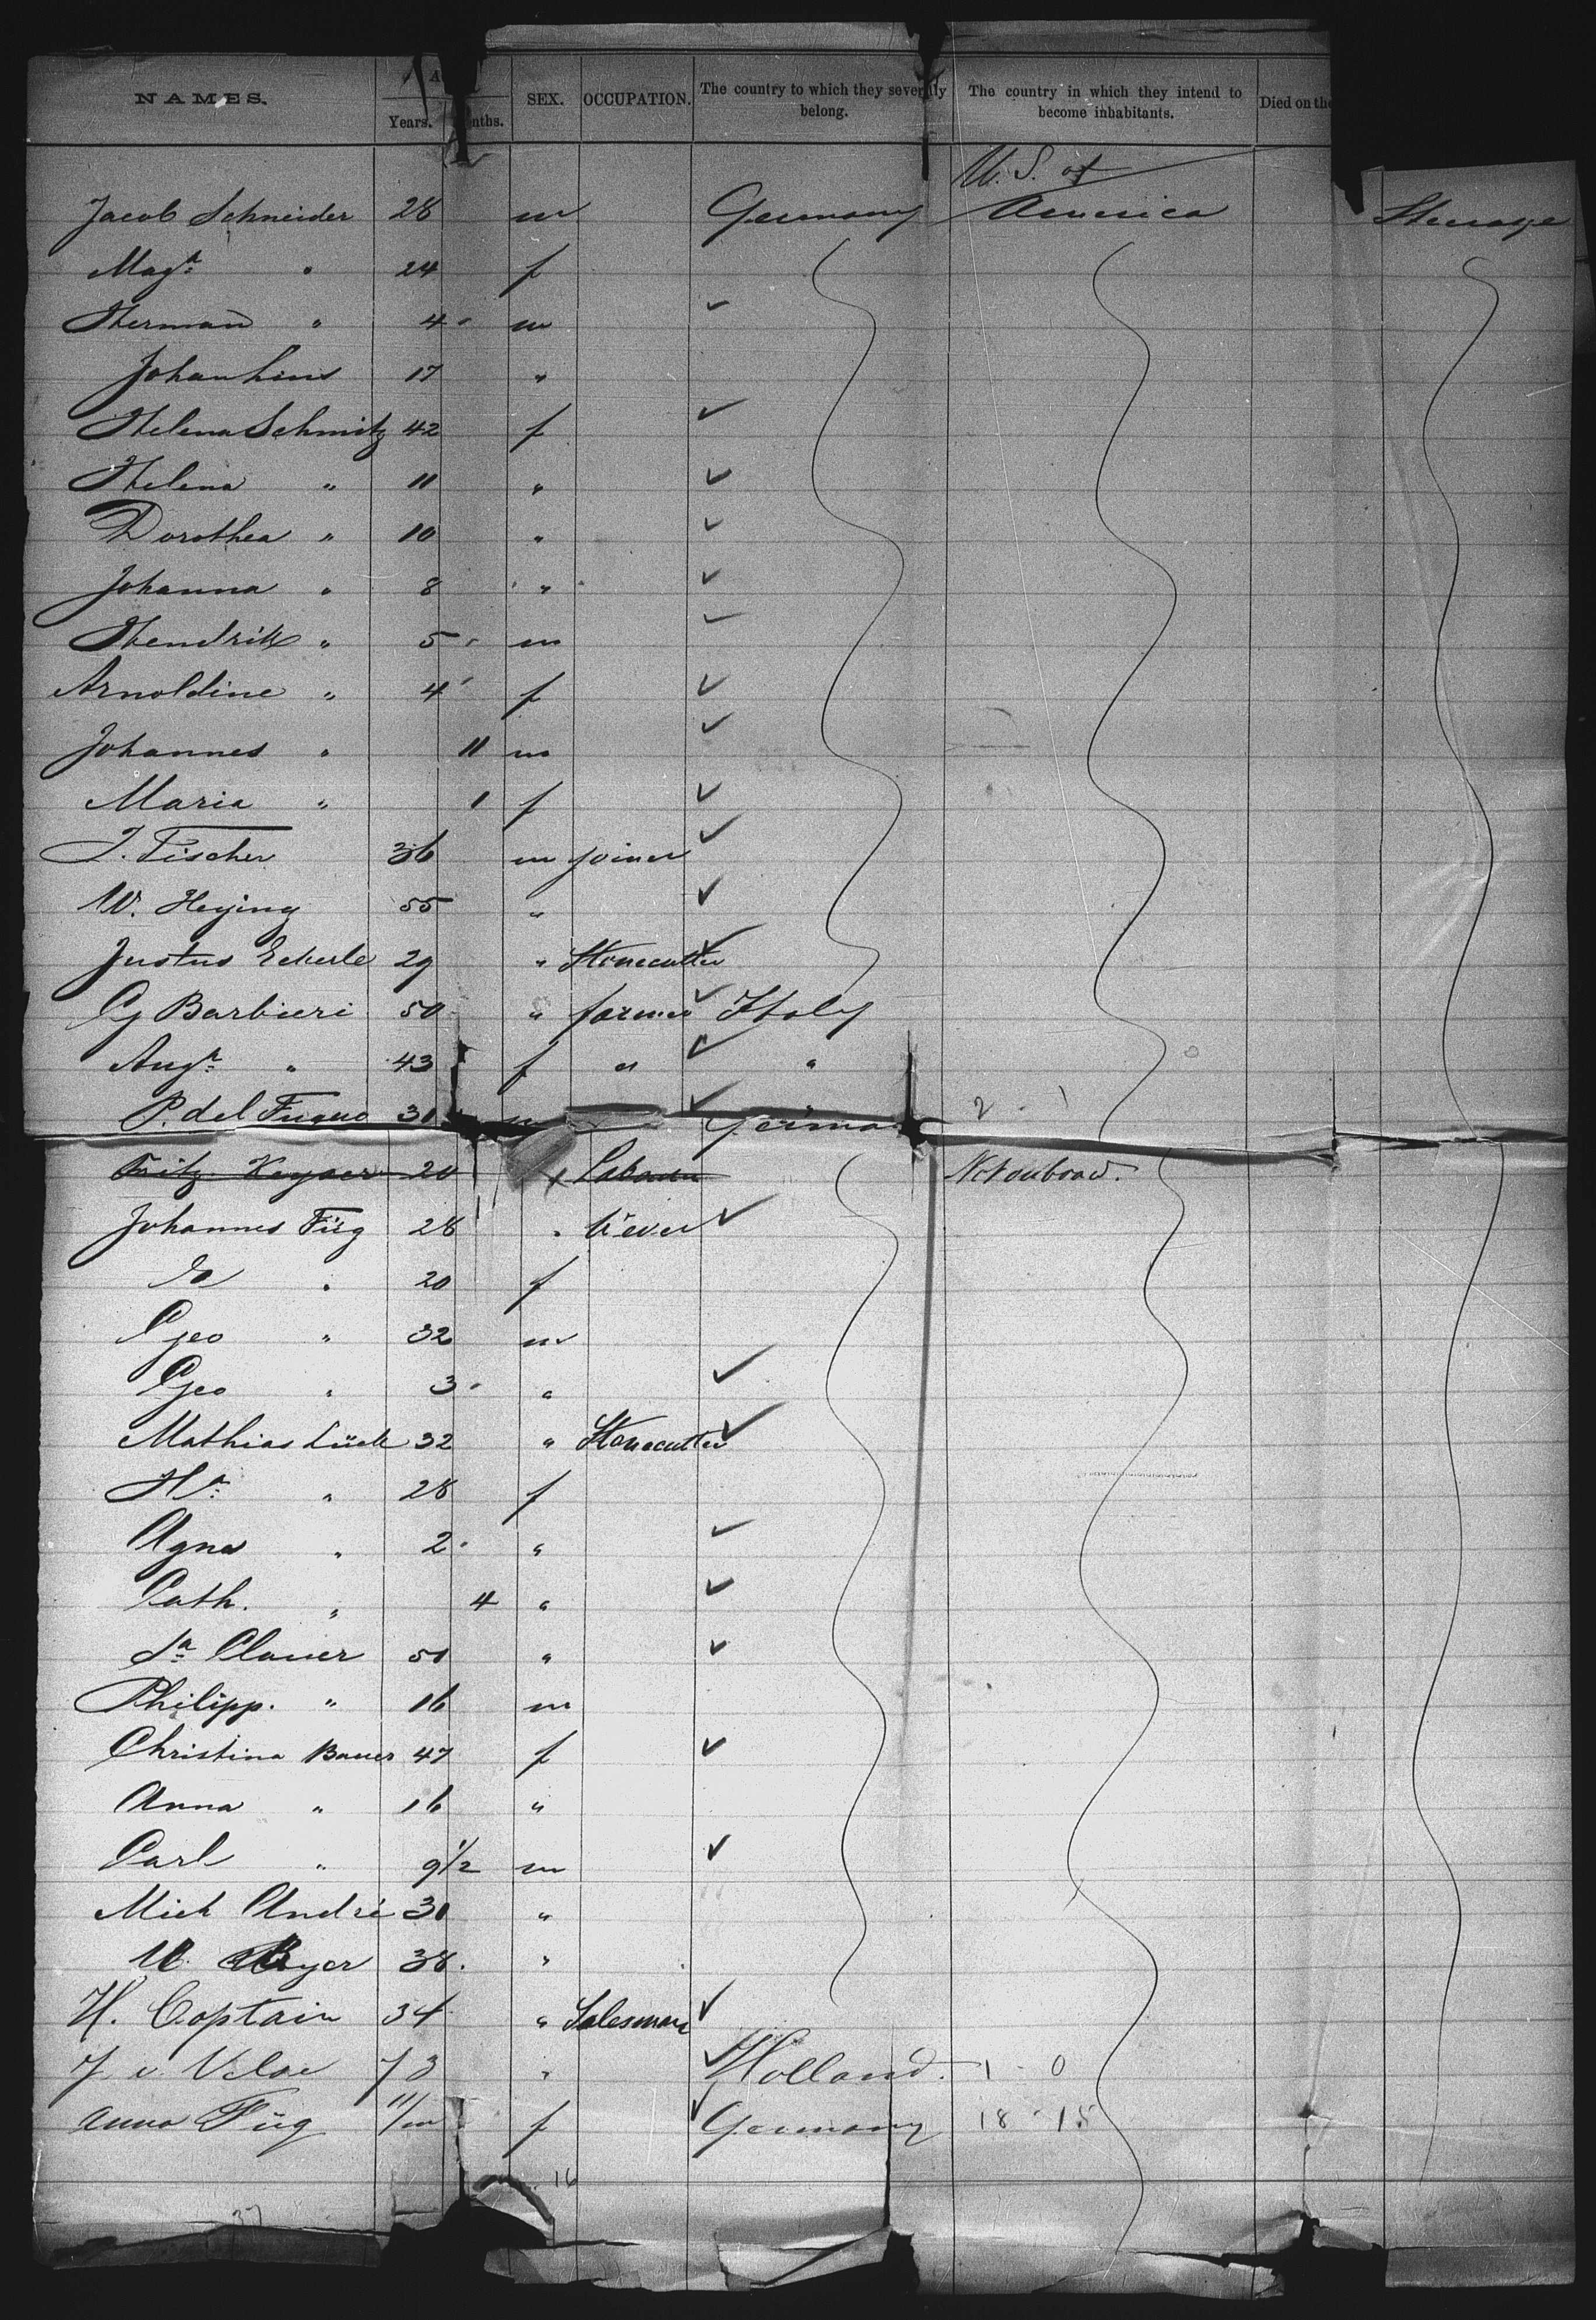 NAMES. Years. SEX. OCCUPATION. The country to which they severally belong. The country in which they intend to become inhabitants. Died on the
U. S. of
Jacob Schneider 28 m Germany America Steerage
Magᵃ " 24 f
Herman " 4 m
Johan 17 "
Helena Schmitz 42 f
Helena " 11 "
Dorothea " 10 "
Johanna " 8 "
Hendrik " 5 m
Arnoldine " 4 f
Johannes " 11 m
Maria " 1 f
J. Fischer 36 m joiner
W. Heying 55 "
Justus Eckerle 29 " Stonecutter
G Barbieri 50 " farmer Italy
Augᵃ " 43 f " "
P. del 30 m Germa
Fritz Keyser 20 Laborer Not onboard.
Johannes Füg 28 "
" 20 f
Geo " 32 m
Geo " 3 "
Mathias Lück 32 " Stonecutter
Hᵃ " 28 f
Agna " 2 "
Cath. " 4 "
Clauer 50 "
Philipp. " 16 m
Christina Bauer 47 f
Anna " 16 "
Carl " 9 1/2 m
Mich André 30 "
38 "
H. Captain 34 " Salesman
J. v. 73 " Holland. 1 - 0
Anna Füg 11/m f Germany 18 - 15
16
37